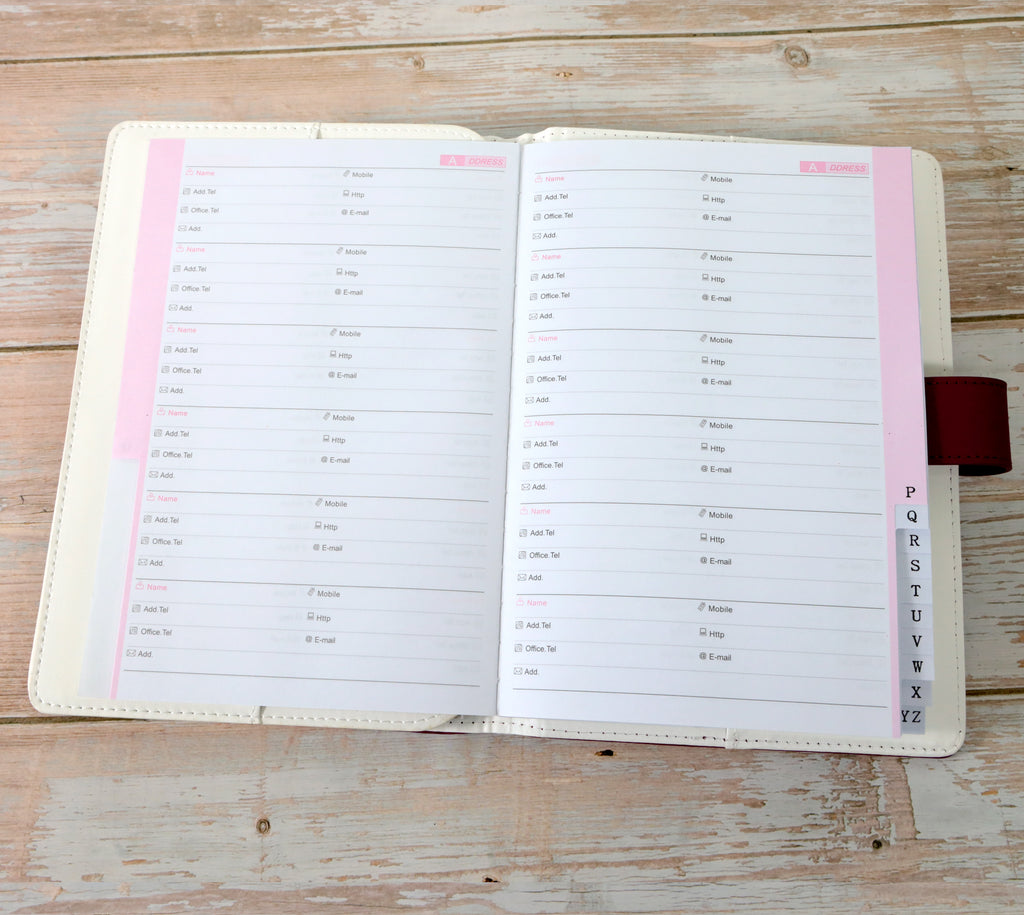 A DDRESS
Name Mobile
Add.Tel Http
Office.Tel @ E-mail
Add.
Name Mobile
Add.Tel Http
Office.Tel @ E-mail
Add.
Name Mobile
Add.Tel Http
Office.Tel @ E-mail
Add.
Name Mobile
Add.Tel Http
Office.Tel @ E-mail
Add.
Name Mobile
Add.Tel Http
Office.Tel @ E-mail
Add.
Name Mobile
Add.Tel Http
Office.Tel @ E-mail
Add.
A DDRESS
Name Mobile
Add.Tel Http
Office.Tel @ E-mail
Add.
Name Mobile
Add.Tel Http
Office.Tel @ E-mail
Add.
Name Mobile
Add.Tel Http
Office.Tel @ E-mail
Add.
Name Mobile
Add.Tel Http
Office.Tel @ E-mail
Add.
Name Mobile
Add.Tel Http
Office.Tel @ E-mail
Add.
Name Mobile
Add.Tel Http
Office.Tel @ E-mail
Add.
P
Q
R
S
T
U
V
W
X
YZ